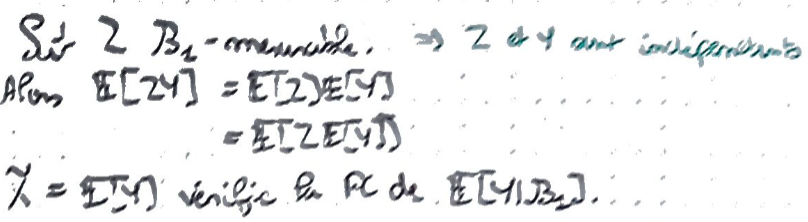 Soit Z B₁-mesurable. ⇒ Z et Y sont indépendants
Alors E[ZY] = E[Z]E[Y]
= E[Z E[Y]]
X = E[Y] vérifie la PC de E[Y|B₁].